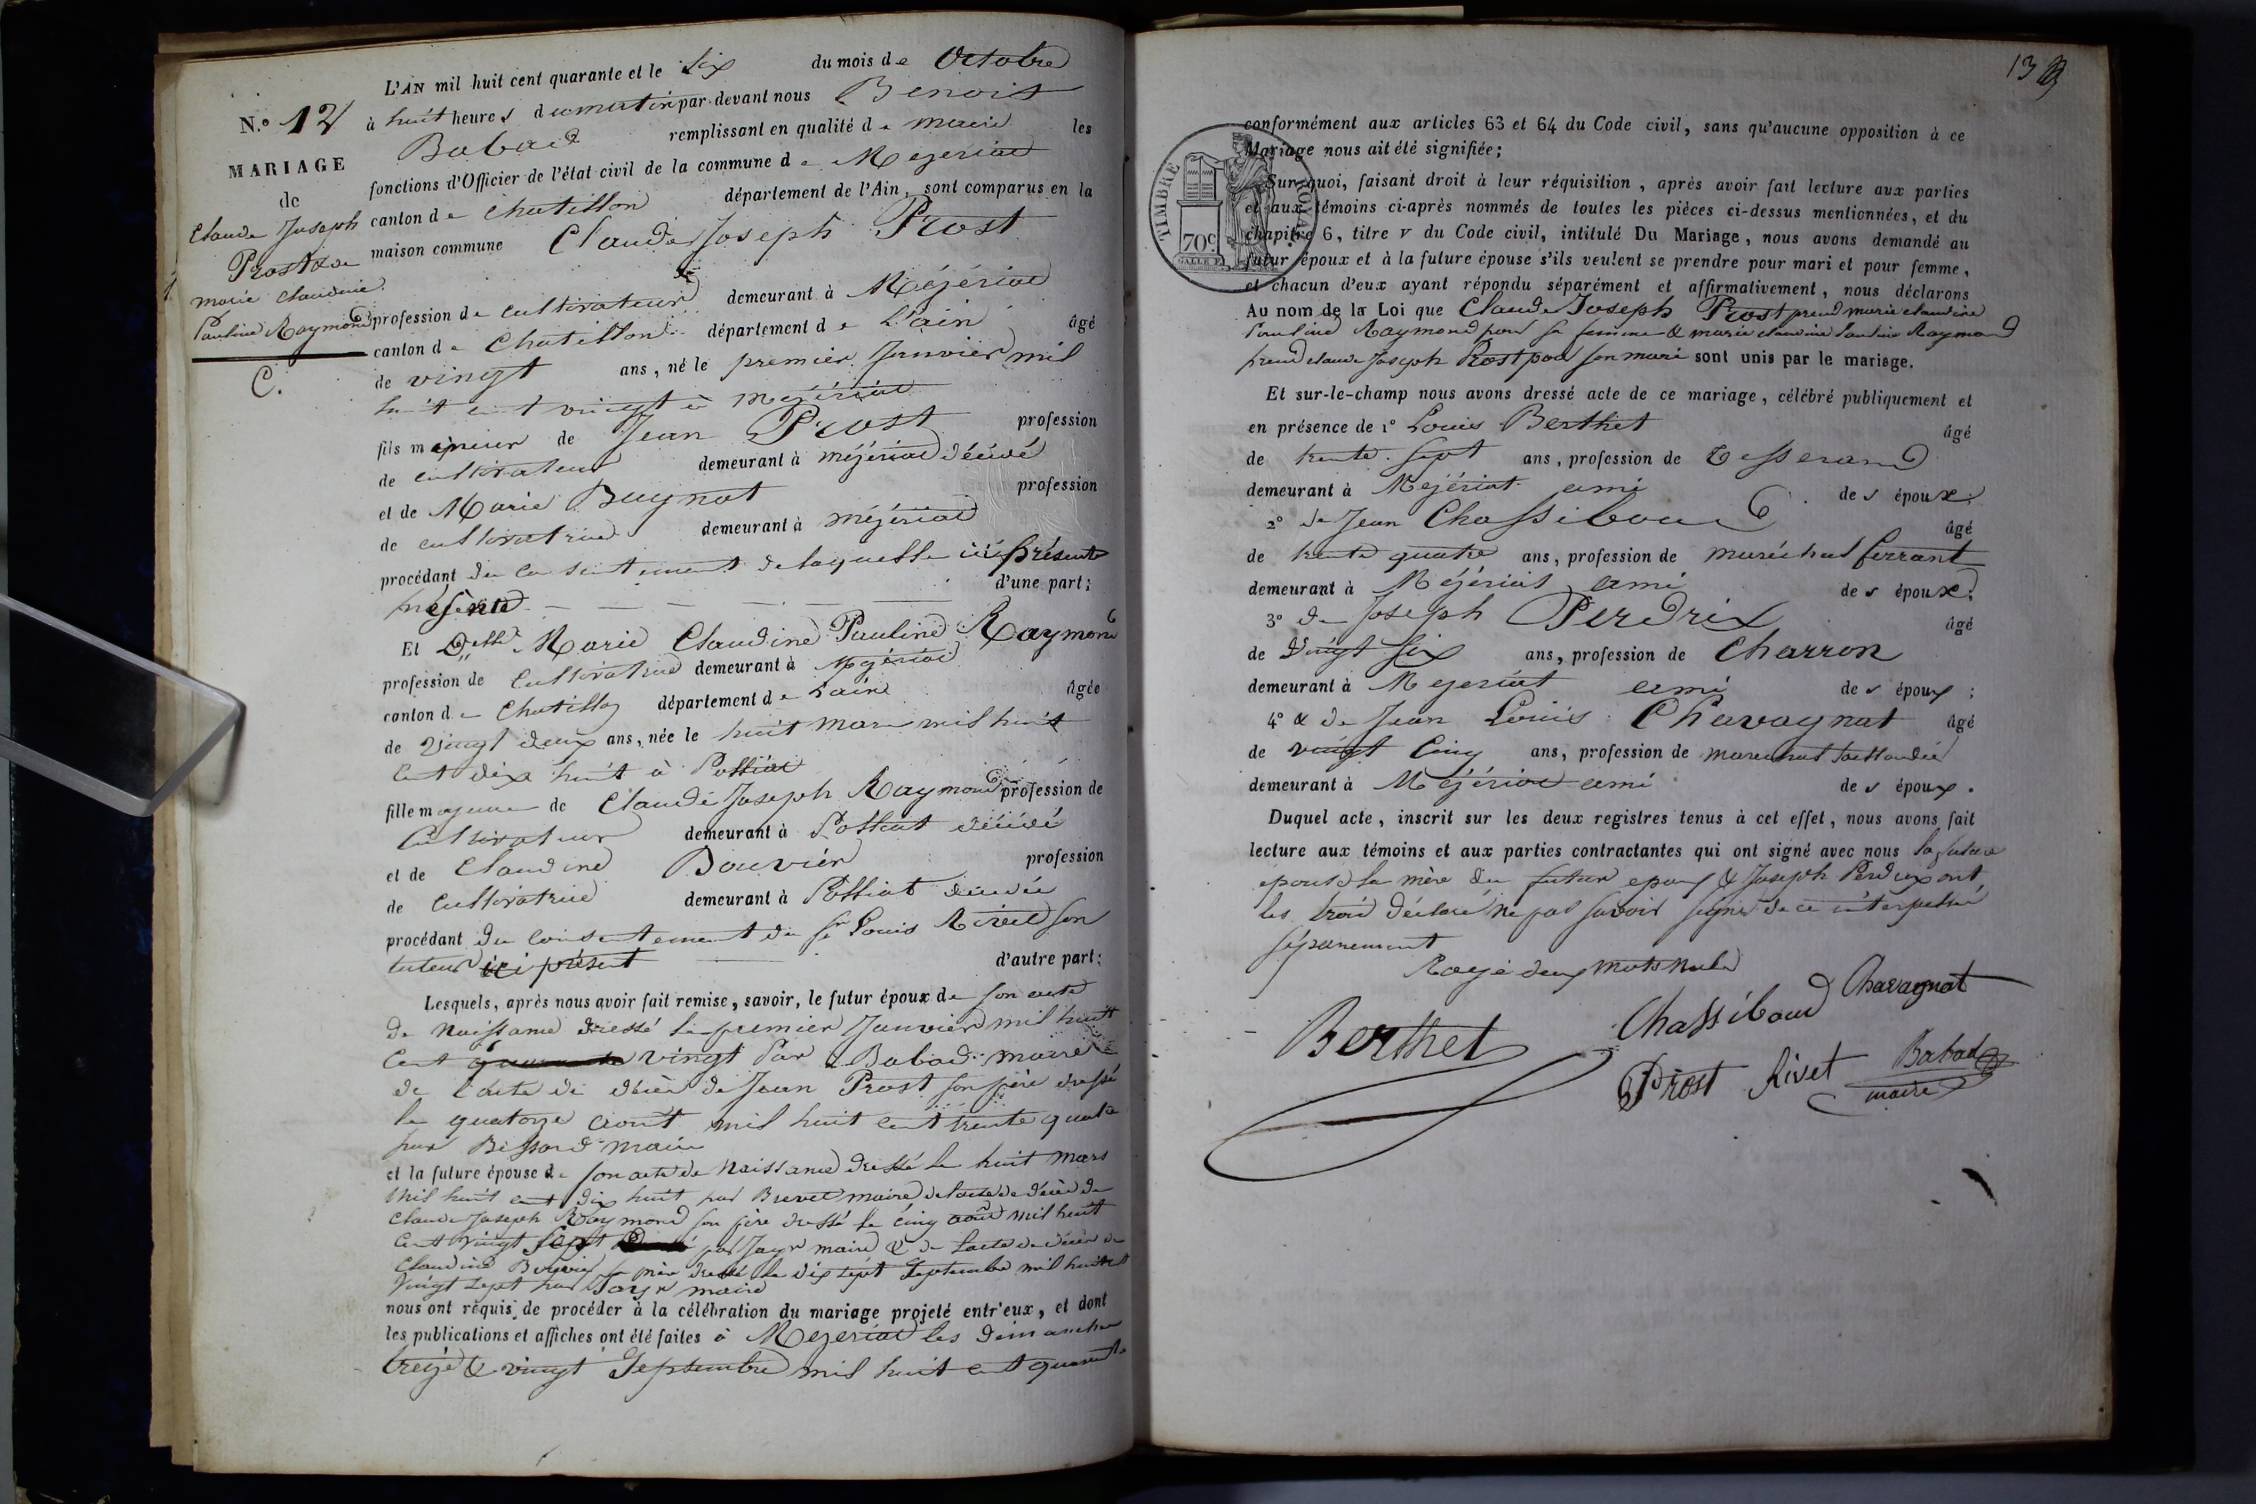 N.° 12
MARIAGE
de
Claude Joseph
Prost & de
marie claudine
Pauline Raymond
C.
L'AN mil huit cent quarante et le six du mois de Octobre
à huit heures du matin par-devant nous Benoit
Babad remplissant en qualité de maire les
fonctions d'Officier de l'état civil de la commune de Mezeriat
canton de chatillon département de l'Ain, sont comparus en la
maison commune Claude Joseph Prost
profession de cultivateur demeurant à Mézériat
canton de Chatillon département de L'ain âgé
de vingt ans, né le premier Janvier mil
huit cent vingt à mézériat
fils mineur de Jean Prost profession
de cultivateur demeurant à mézériat décédé
et de Marie Buynat profession
de cultivatrice demeurant à mézériat
procédant du consentement de laquelle ici présente
présente d'une part;
Et Delle Marie Claudine Pauline Raymond
profession de cultivatrice demeurant à Mézériat
canton de Chatillon département de L'ain âgée
de Vingt deux ans, née le huit mars mil huit
cent dix huit à Polliat
fille majeure de Claude Joseph Raymond profession de
Cultivateur demeurant à Polliat décédé
et de Claudine Bouvier profession
de Cultivatrice demeurant à Polliat décédée
procédant du consentement du sr Louis Rivet son
tuteur ici présent d'autre part;
Lesquels, après nous avoir fait remise, savoir, le futur époux de son acte
de naissance dressé le premier Janvier mil huit
Cent vingt par Babad maire
de l'acte de décès de Jean Prost son père dressé
le quatorze aout mil huit cent trente quatre
par Bessard maire
et la future épouse de son acte de Naissance dressé le huit mars
mil huit cent dix huit par Brevet maire de l'acte de décès de
Claude Joseph Raymond son père dressé le cinq aout mil huit
Cent vingt sept par Jayr maire & de l'acte de décès de
Claudine Bouvier sa mère dressé le dix sept Septembre mil huit cent
Vingt sept par Jayr maire
nous ont requis de procéder à la célébration du mariage projeté entr'eux, et dont
les publications et affiches ont été faites à Mezeriat les dimanches
treize & vingt Septembre mil huit cent quarante
13
TIMBRE ROYAL
70c
conformément aux articles 63 et 64 du Code civil, sans qu'aucune opposition à ce
Mariage nous ait été signifiée;
Sur quoi, faisant droit à leur réquisition, après avoir fait lecture aux parties
et aux témoins ci-après nommés de toutes les pièces ci-dessus mentionnées, et du
chapitre 6, titre V du Code civil, intitulé Du Mariage, nous avons demandé au
futur époux et à la future épouse s'ils veulent se prendre pour mari et pour femme,
et chacun d'eux ayant répondu séparément et affirmativement, nous déclarons
Au nom de la Loi que Claude Joseph Prost prend marie claudine
Pauline Raymond pour sa femme & marie claudine Pauline Raymond
prend claude Joseph Prost pour son mari sont unis par le mariage.
Et sur-le-champ nous avons dressé acte de ce mariage, célébré publiquement et
en présence de 1° Louis Berthet âgé
de trente sept ans, profession de Tesserand
demeurant à Mezériat ami des époux.
2° de Jean Chassiboud âgé
de trente quatre ans, profession de maréchal ferrant
demeurant à Mézériat ami des époux;
3° de Joseph Perdrix âgé
de Vingt six ans, profession de Charron
demeurant à Mezeriat ami des époux;
4° & de Jean Louis Chavagnat âgé
de vingt cinq ans, profession de marechal taillandier
demeurant à Mézériat ami des époux.
Duquel acte, inscrit sur les deux registres tenus à cet effet, nous avons fait
lecture aux témoins et aux parties contractantes qui ont signé avec nous la future
épouse la mère du futur epoux & Joseph Perdrix ont
les trois déclaré ne pas savoir signer de ce interpellé
séparement
Rayé deux mots nuls
Berthet Chassiboud Chavagnat
Prost Rivet Babad
maire